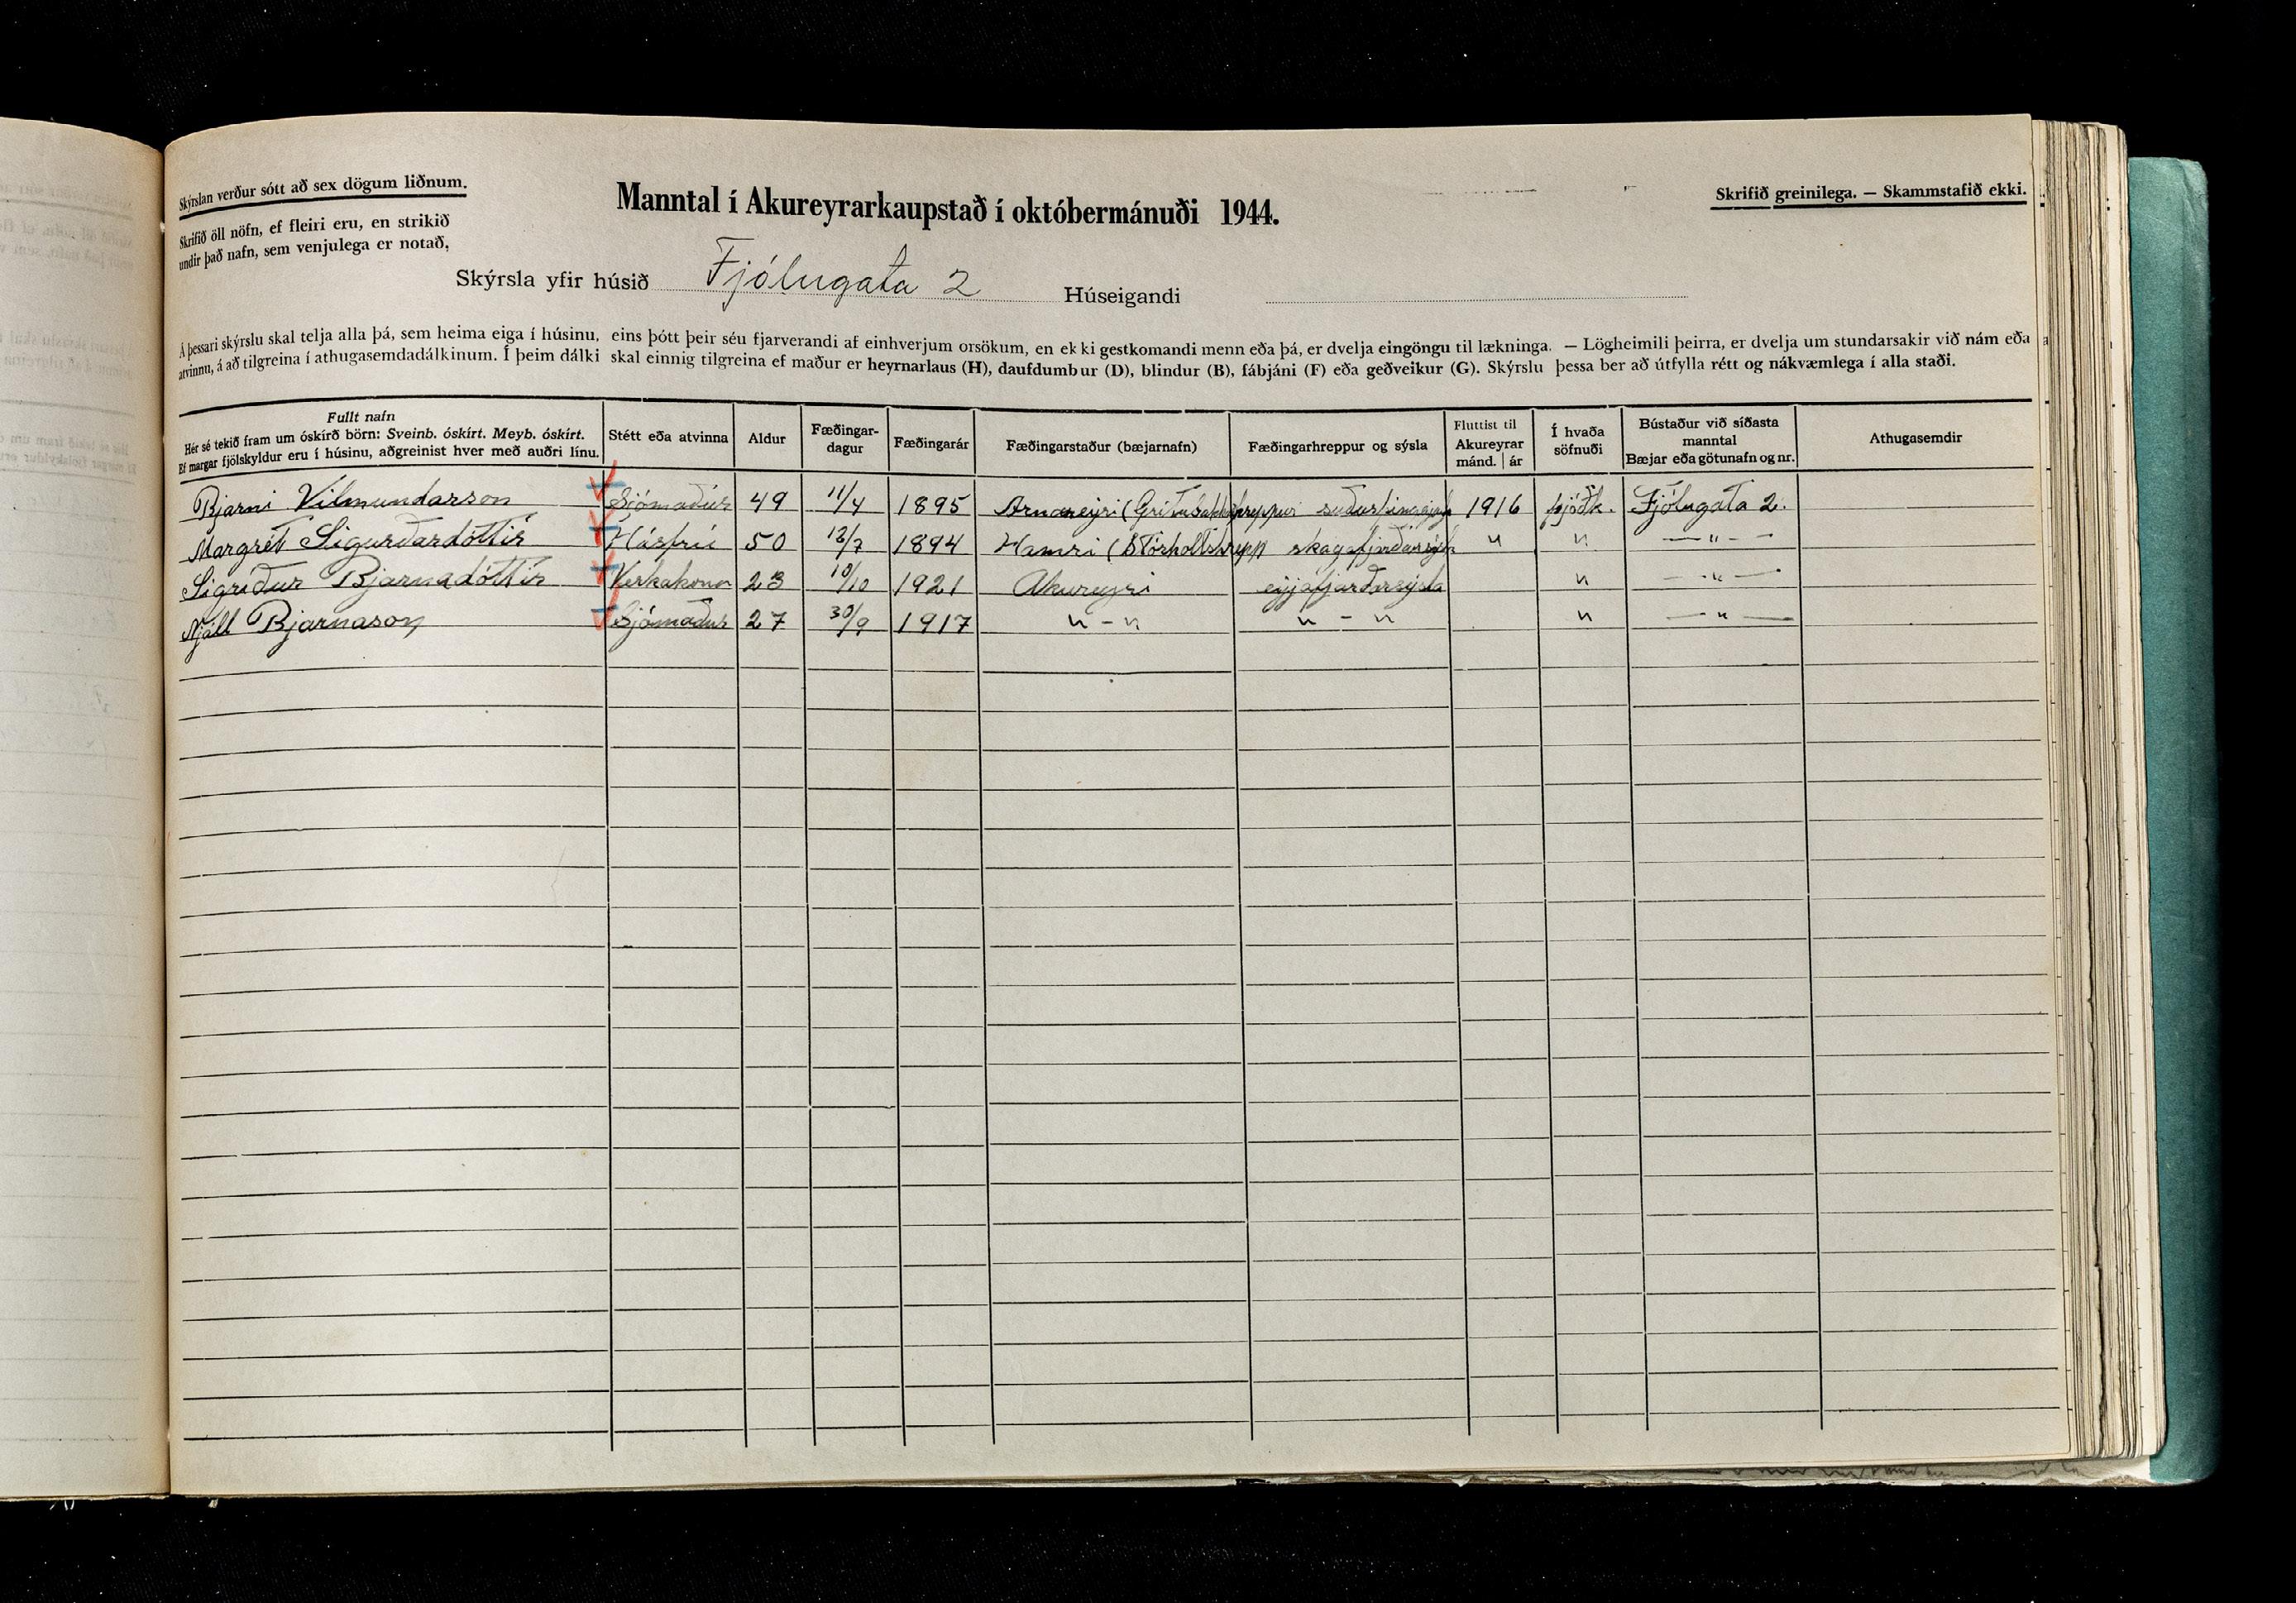 Skýrslan verður sótt að sex dögum liðnum.
Skrifið öll nöfn, ef fleiri eru, en strikið
undir það nafn, sem venjulega er notað,
Manntal í Akureyrarkaupstað í októbermánuði 1944.
Skrifið greinilega. — Skammstafið ekki.
Skýrsla yfir húsið Fjólugata 2 Húseigandi
Á þessari skýrslu skal telja alla þá, sem heima eiga í húsinu, eins þótt þeir séu fjarverandi af einhverjum orsökum, en ekki gestkomandi menn eða þá, er dvelja eingöngu til lækninga. — Lögheimili þeirra, er dvelja um stundarsakir við nám eða
atvinnu, á að tilgreina í athugasemdadálkinum. Í þeim dálki skal einnig tilgreina ef maður er heyrnarlaus (H), daufdumbur (D), blindur (B), fábjáni (F) eða geðveikur (G). Skýrslu þessa ber að útfylla rétt og nákvæmlega í alla staði.
Fullt nafn
Hér sé tekið fram um óskírð börn: Sveinb. óskírt. Meyb. óskírt.
Ef margar fjölskyldur eru í húsinu, aðgreinist hver með auðri línu.
Stétt eða atvinna
Aldur
Fæðingar-
dagur
Fæðingarár
Fæðingarstaður (bæjarnafn)
Fæðingarhreppur og sýsla
Fluttist til
Akureyrar
mánd. | ár
Í hvaða
söfnuði
Bústaður við síðasta
manntal
Bæjar eða götunafn og nr.
Athugasemdir
Bjarni Vilmundarson Sjómaður 49 11/4 1895 1916 þjóðk. Fjólugata 2.
Margrét Sigurðardóttir Húsfrú 50 12/7 1894 Hamri skagafjarðarsýsla " " — " —
Sigríður Bjarnadóttir Verkakona 23 10/10 1921 Akureyri eyjafjarðarsýsla " — " —
Njáll Bjarnason Sjómaður 27 30/9 1917 " - " " - " " — " —